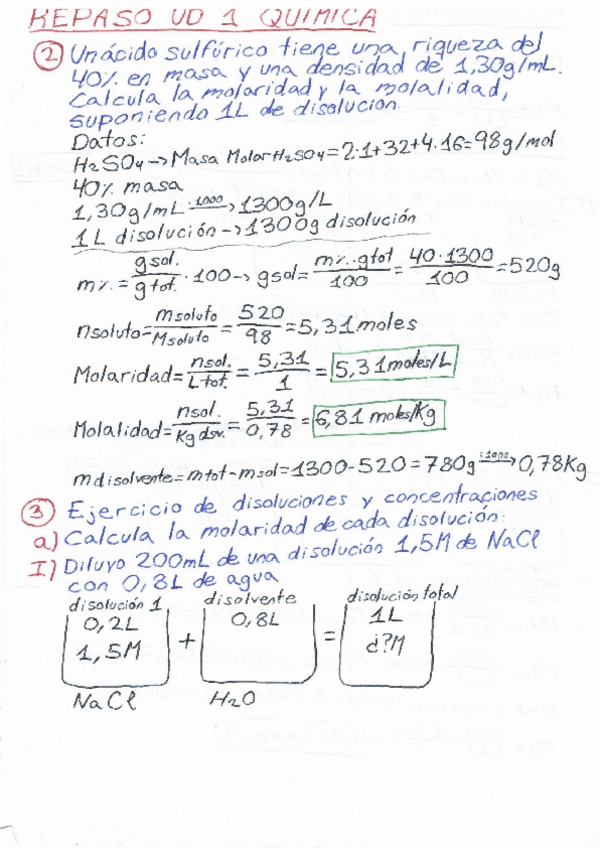 REPASO UD 1 QUIMICA
2 Un ácido sulfúrico tiene una riqueza del
40% en masa y una densidad de 1,30g/mL.
Calcula la molaridad y la molalidad,
suponiendo 1L de disolución.
Datos:
H2SO4 → Masa Molar H2SO4 = 2·1+32+4·16=98g/mol
40% masa
1,30g/mL ·1000→ 1300g/L
1L disolución → 1300g disolución
m%. = g sol. / g tot. · 100 → g sol = m%. · g tot / 100 = 40·1300 / 100 = 520g
nsoluto = msoluto / Msoluto = 520 / 98 = 5,31 moles
Molaridad = nsol. / L tot. = 5,31 / 1 = 5,31 moles/L
Molalidad = nsol. / Kg dsv. = 5,31 / 0,78 = 6,81 moles/Kg
mdisolvente = mtot - msol = 1300-520 = 780g :1000→ 0,78Kg
3 Ejercicio de disoluciones y concentraciones
a) Calcula la molaridad de cada disolución:
I) Diluyo 200mL de una disolución 1,5M de NaCl
con 0,8L de agua
disolución 1 disolvente disolución total
0,2L 0,8L 1L
1,5M + = ¿?M
NaCl H2O